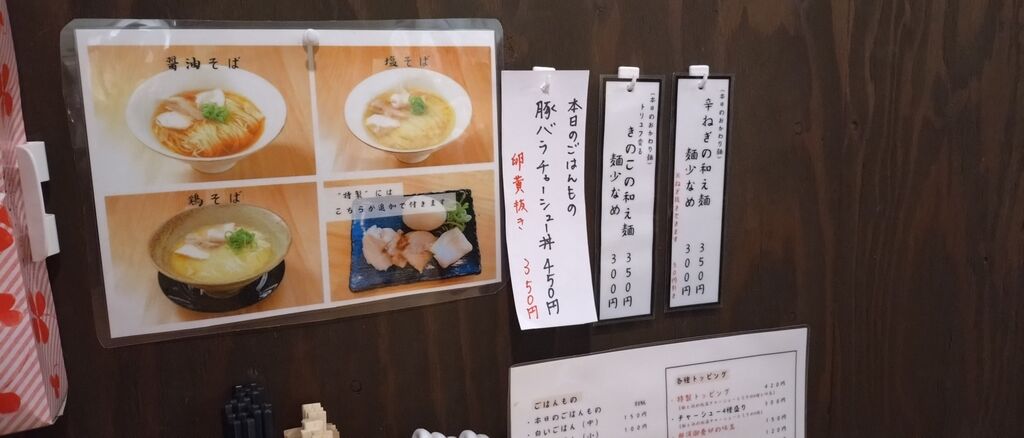 醤油そば
塩そば
鶏そば
"特製"には
こちらが追加で付きます
本日のごはんもの
豚バラチャーシュー丼 450円
卵黄抜き 350円
(本日のおかわり麺)
トリュフ香る
きのこの和え麺 350円
麺少なめ 300円
(本日のおかわり麺)
辛ねぎの和え麺 350円
麺少なめ 300円
※ねぎ抜きできます 50円引き
ごはんもの
・本日のごはんもの 別紙
・白いごはん(中) 150円
(小) 100円
各種トッピング
・特製トッピング 420円
・チャーシュー4種盛り 300円
120円